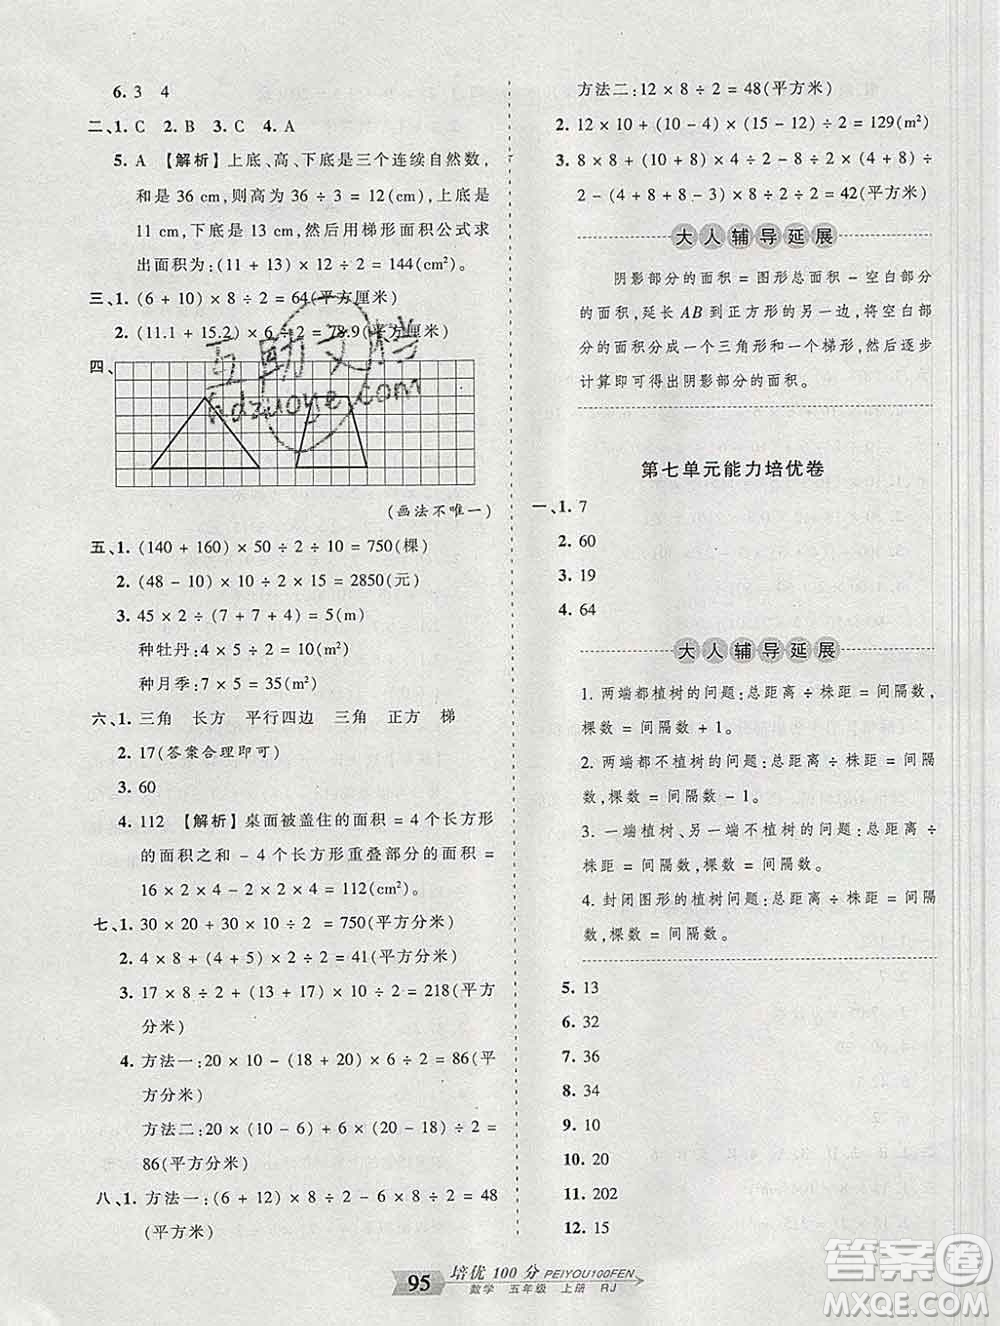 6. 3 4
二、1. C 2. B 3. C 4. A
5. A 【解析】上底、高、下底是三个连续自然数,
和是 36 cm,则高为 36 ÷ 3 = 12(cm),上底是
11 cm,下底是 13 cm,然后用梯形面积公式求
出面积为:(11 + 13) × 12 ÷ 2 = 144(cm²)。
三、1. (6 + 10) × 8 ÷ 2 = 64(平方厘米)
2. (11.1 + 15.2) × 6 ÷ 2 = 78.9(平方厘米)
四、
(画法不唯一)
五、1. (140 + 160) × 50 ÷ 2 ÷ 10 = 750(棵)
2. (48 - 10) × 10 ÷ 2 × 15 = 2850(元)
3. 45 × 2 ÷ (7 + 7 + 4) = 5(m)
种牡丹:4 × 5 ÷ 2 = 10(m²)
种月季:7 × 5 = 35(m²)
六、1. 三角 长方 平行四边 三角 正方 梯
2. 17(答案合理即可)
3. 60
4. 112 【解析】桌面被盖住的面积 = 4 个长方形
的面积之和 - 4 个长方形重叠部分的面积 =
16 × 2 × 4 - 2 × 2 × 4 = 112(cm²)。
七、1. 30 × 20 + 30 × 10 ÷ 2 = 750(平方分米)
2. 4 × 8 + (4 + 5) × 2 ÷ 2 = 41(平方分米)
3. 17 × 8 ÷ 2 + (13 + 17) × 10 ÷ 2 = 218(平方
分米)
4. 方法一:20 × 10 - (18 + 20) × 6 ÷ 2 = 86(平方
分米)
方法二:20 × (10 - 6) + (20 - 18) × 6 ÷ 2 =
86(平方分米)
八、1. 方法一:(6 + 12) × 8 ÷ 2 - 6 × 8 ÷ 2 = 48
(平方米)
方法二:12 × 8 ÷ 2 = 48(平方米)
2. 12 × 10 + (10 - 4) × (15 - 12) ÷ 2 = 129(m²)
3. 8 × 8 + (4 + 8) × 4 ÷ 2 - (4 + 8) × 8 ÷
2 - (4 + 8 + 8 - 3) × 4 ÷ 2 = 42(平方米)
大人辅导延展
阴影部分的面积 = 图形总面积 - 空白部分
的面积,延长 AB 到正方形的另一边,将空白部
分的面积分成一个三角形和一个梯形,然后逐步
计算即可得出阴影部分的面积。
第七单元能力培优卷
一、1. 7
2. 60
3. 19
4. 64
大人辅导延展
1. 两端都植树的问题:总距离 ÷ 株距 = 间隔数,
棵数 = 间隔数 + 1。
2. 两端都不植树的问题:总距离 ÷ 株距 = 间隔
数,棵数 = 间隔数 - 1。
3. 一端植树、另一端不植树的问题:总距离 ÷
株距 = 间隔数,棵数 = 间隔数。
4. 封闭图形的植树问题:总距离 ÷ 株距 = 间隔
数,棵数 = 间隔数。
5. 13
6. 32
7. 36
8. 34
9. 10
10. 20
11. 202
12. 15
95 培优 100 分 PEIYOU100FEN
数学 五年级 上册 RJ
互助文档
hdzuoye.com
答案圈
MXQE.COM